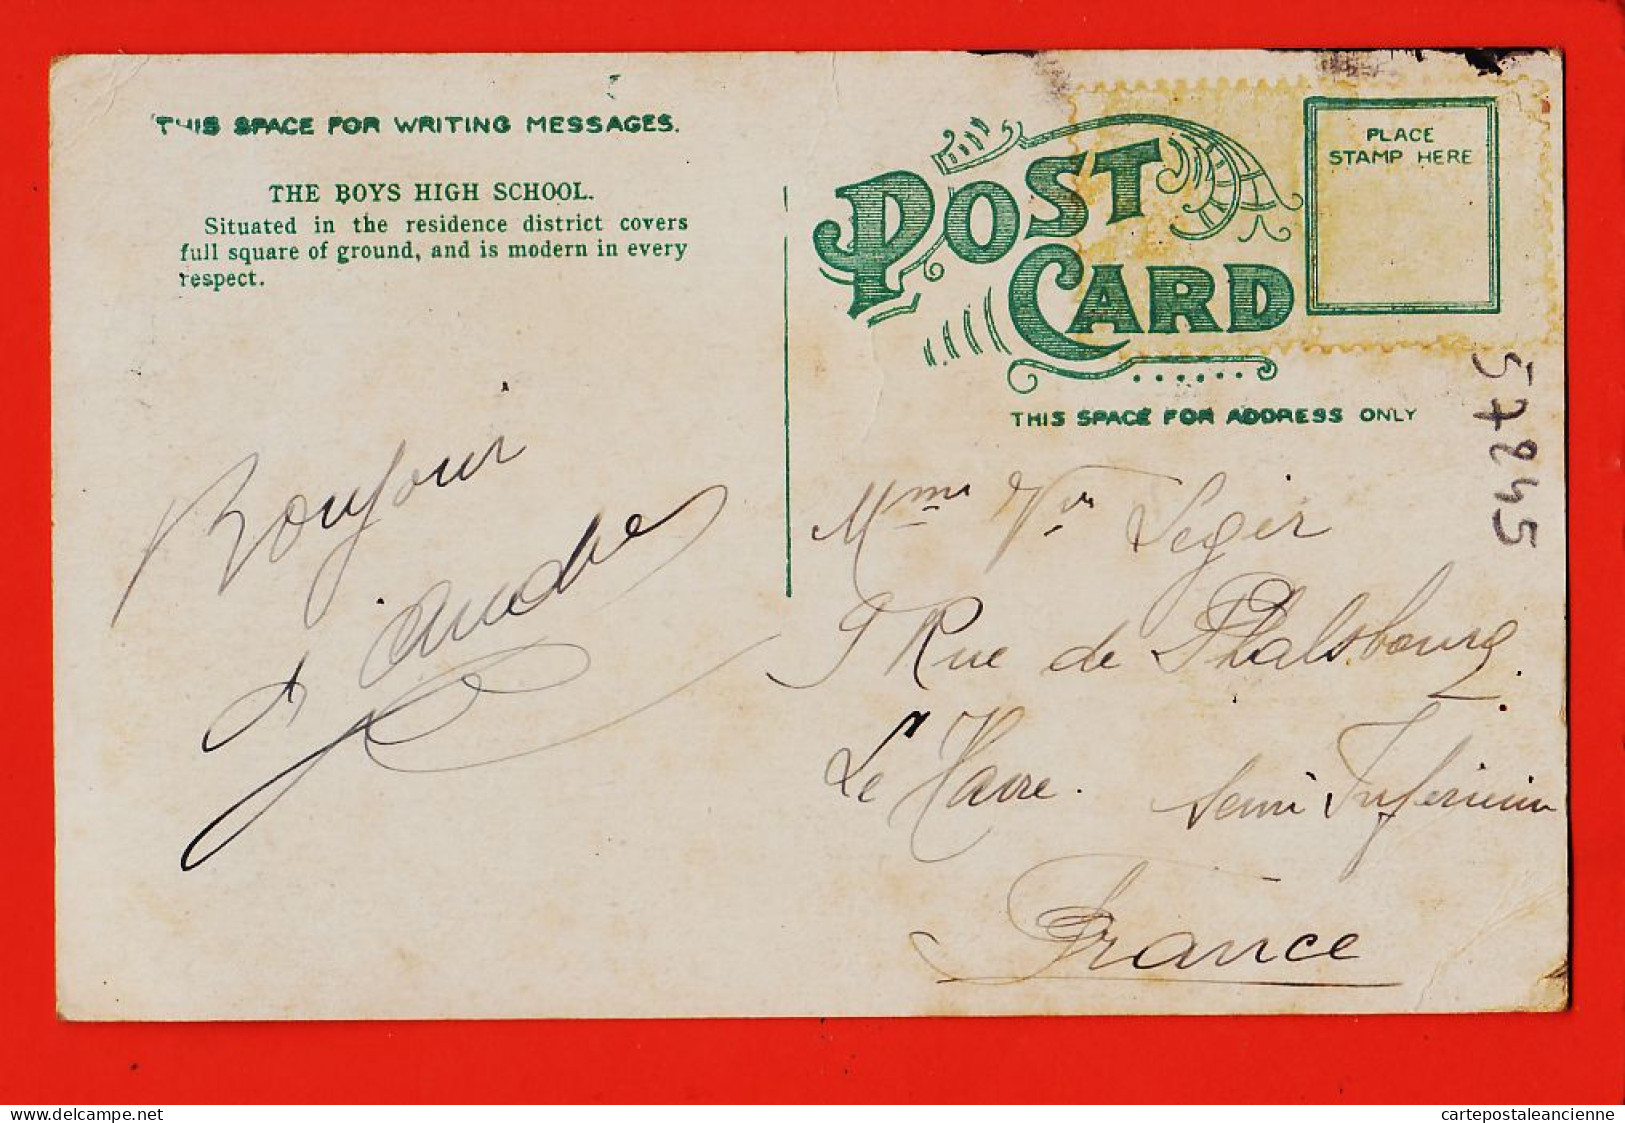 THIS SPACE FOR WRITING MESSAGES.
THE BOYS HIGH SCHOOL.
Situated in the residence district covers
full square of ground, and is modern in every
respect.
Bonjour
d'André
POST
CARD
PLACE
STAMP HERE
THIS SPACE FOR ADDRESS ONLY
57245
Mme Vve Leger
9 Rue de Phalsbourg.
Le Havre. Seine Inférieure
France
cartes-postales-anciennes.com
cartepostaleancienne